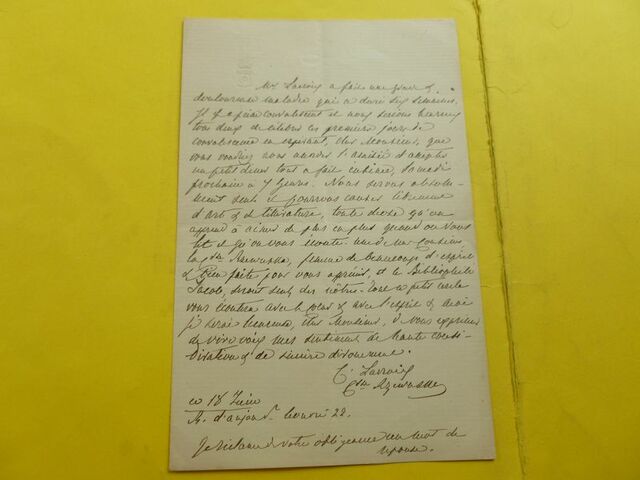 Mr Lacroix a fait une grave &
douloureuse maladie qui a duré six semaines.
Il est en convalescence et nous serions heureux
tous deux de célébrer ces premiers jours de
convalescence en espérant, cher Monsieur, que
vous voudrez nous accorder l'amitié d'accepter
un petit diner tout à fait intime, Samedi
prochain à 7 heures. Nous serons absolu-
ment seuls & pourrons causer librement
d'art & de littérature, toute chose qu'on
apprend à aimer de plus en plus quand on vous
lit & qu'on vous écoute. une de mes cousines,
la Csse Rzewuska, femme de beaucoup d'esprit
& bien faite pour vous apprécier, et le Bibliophile
Jacob, seront seuls des nôtres. Notre petit cercle
vous écoutera avec le coeur & avec l'esprit & moi
je serai heureuse, cher Monsieur, de vous exprimer
de vive voix mes sentiments de haute consi-
dération & de sincère dévouement.
C. Lacroix
Csse Rzewuska
ce 18 Juin
R. d'anjou St honoré 22.
Je réclame de votre obligeance un mot de
réponse.